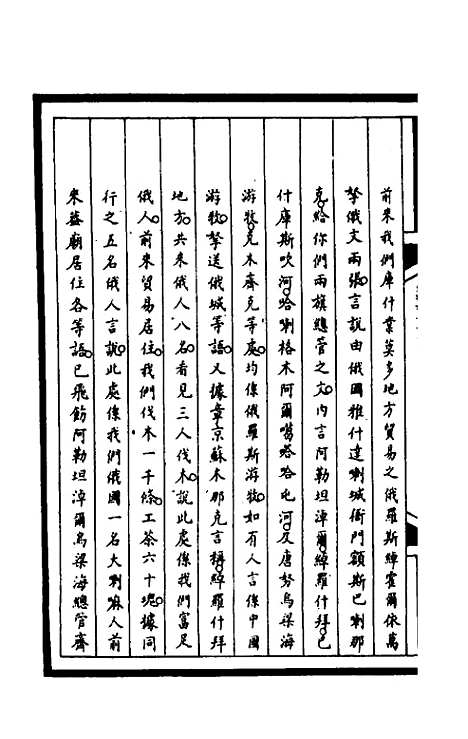 前來我們庫什業莫多地方貿易之俄羅斯綽霍爾依萬
拏俄文兩張言說由俄國雅什達喇城衙門額斯巴喇那
克給你們兩旗總管之文內言阿勒坦淖爾綽羅什拜巴
什庫斯吹河哈喇格木阿爾噶哈哈屯河及唐努烏梁海
游牧克木齊克等處均係俄羅斯游牧如有人言係中國
游牧拏送俄城等語又據章京蘇木那克言稱綽羅什拜
地方共來俄人八名看見三人伐木說此處係我們富足
俄人前來貿易居住我們伐木一千條工茶六十塊據同
行之五名俄人言說此處係我們俄國一名大喇嘛人前
來蓋廟居住各等語已飛飭阿勒坦淖爾烏梁海總管齊